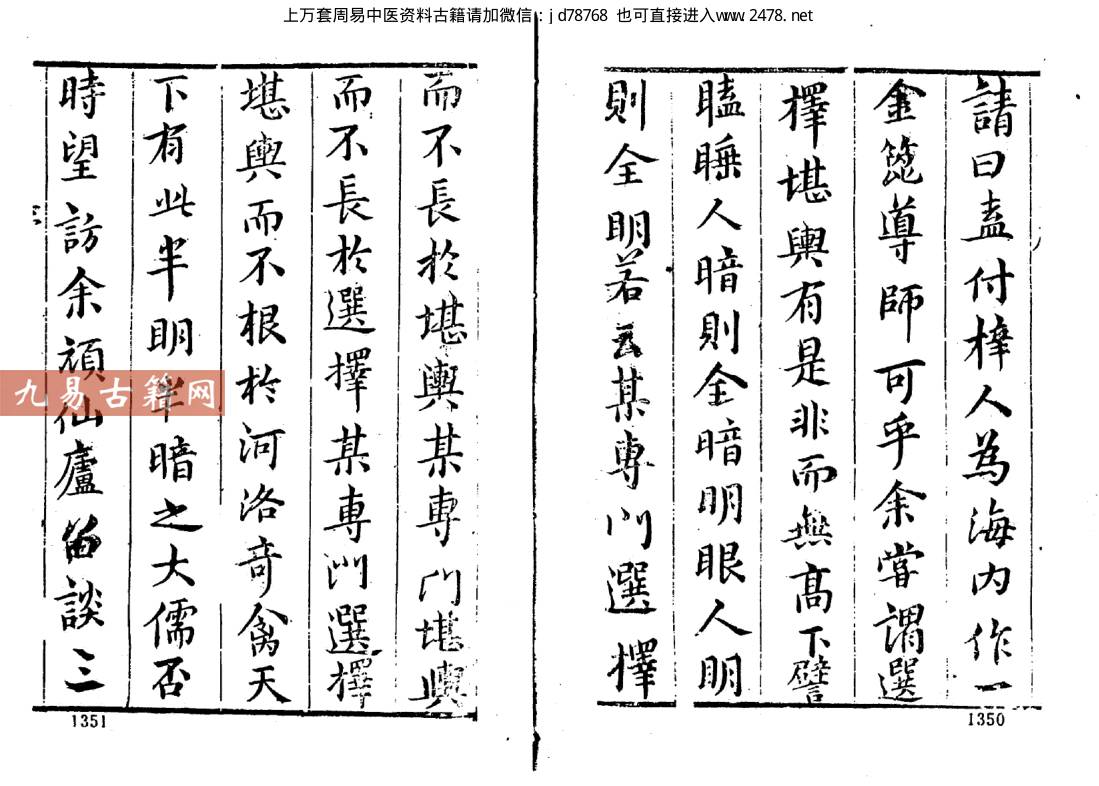 上万套周易中医资料古籍请加微信：jd78768 也可直接进入www.2478.net
請曰盍付梓人為海内作一
金篦導師可乎余嘗謂選
擇堪輿有是非而無高下譬
瞌睡人暗則全暗明眼人明
則全明若云某專門選擇
1350
而不長於堪輿某專門堪輿
而不長於選擇某專門選擇
堪輿而不根於河洛奇禽天
下有此半明半暗之大儒否
時望訪余頑仙廬留談三
1351
九易古籍网